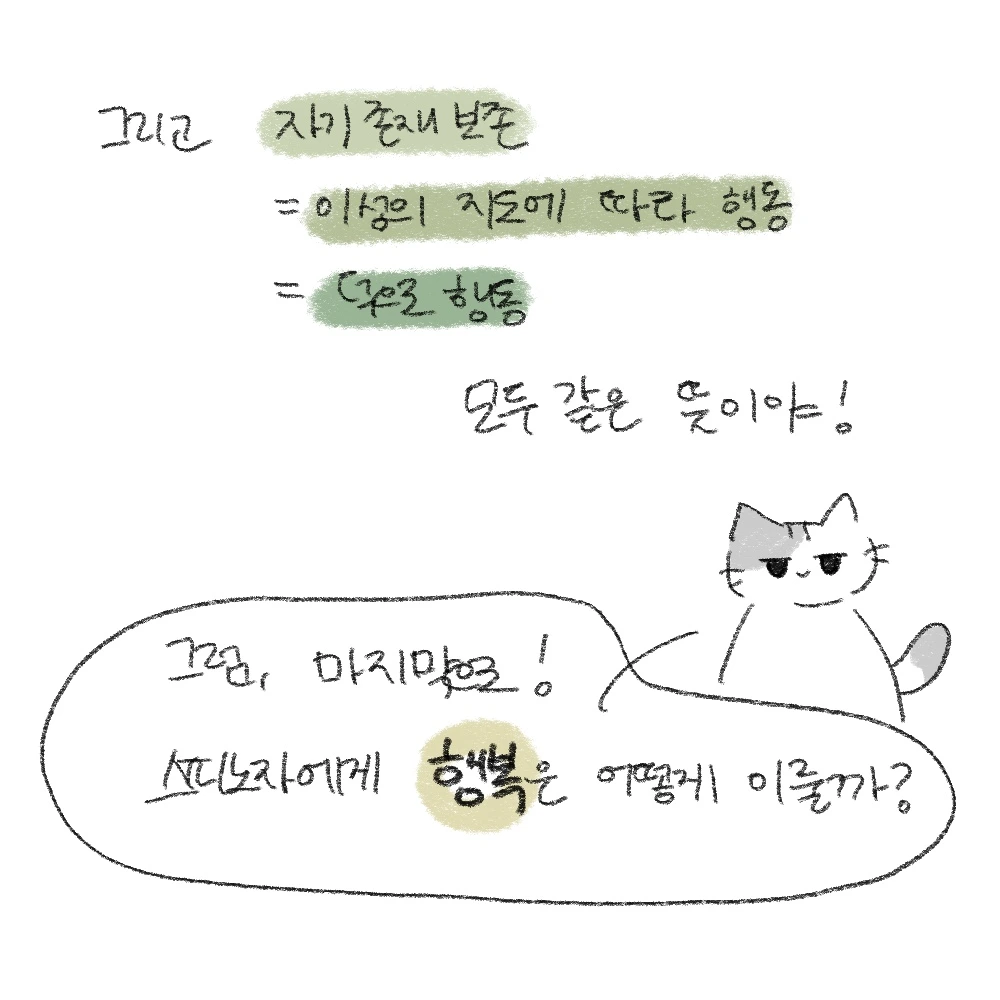 그리고 자기 존재 보존
= 이성의 지도에 따라 행동
= 덕으로 행동
모두 같은 뜻이야!
그럼, 마지막으로!
스피노자에게 행복은 어떻게 이룰까?